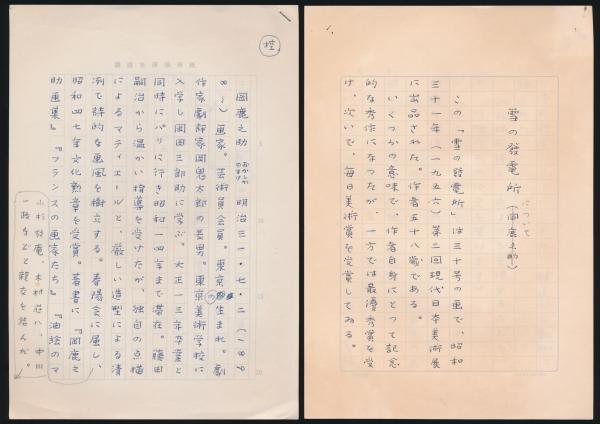 雪の發電所 (岡鹿之助)
について
この「雪の發電所」は三十号の画で、昭和
三十一年(一九五六)第二回現代日本美術展
に出品された。作者五十八歳である。
いくつかの意味で、作者自身にとって記念
的な秀作になったが、一方では最優秀賞を受
け、次いで、毎日美術賞を受賞してゐる。
岡鹿之助 おかしかのすけ 明治三一・七・二(一八九
八〜)画家。芸術員会員。東京の生まれ。劇
作家劇評家岡鬼太郎の長男。東京美術学校に
入学し岡田三郎助に学ぶ。大正一三年卒業と
同時にパリに行き昭和一四年まで滞在。藤田
嗣治から温かい指導を受けたが、独自の点描
によるマティエールと、厳しい造型による清
冽で詩的な画風を樹立する。春陽会に属し、
昭和四七年文化勲章を受賞。著書に『岡鹿之
助画集』『フランスの画家たち』『油絵のマ
小杉放庵、木村荘八、中川
一政などと親交を結んだ。